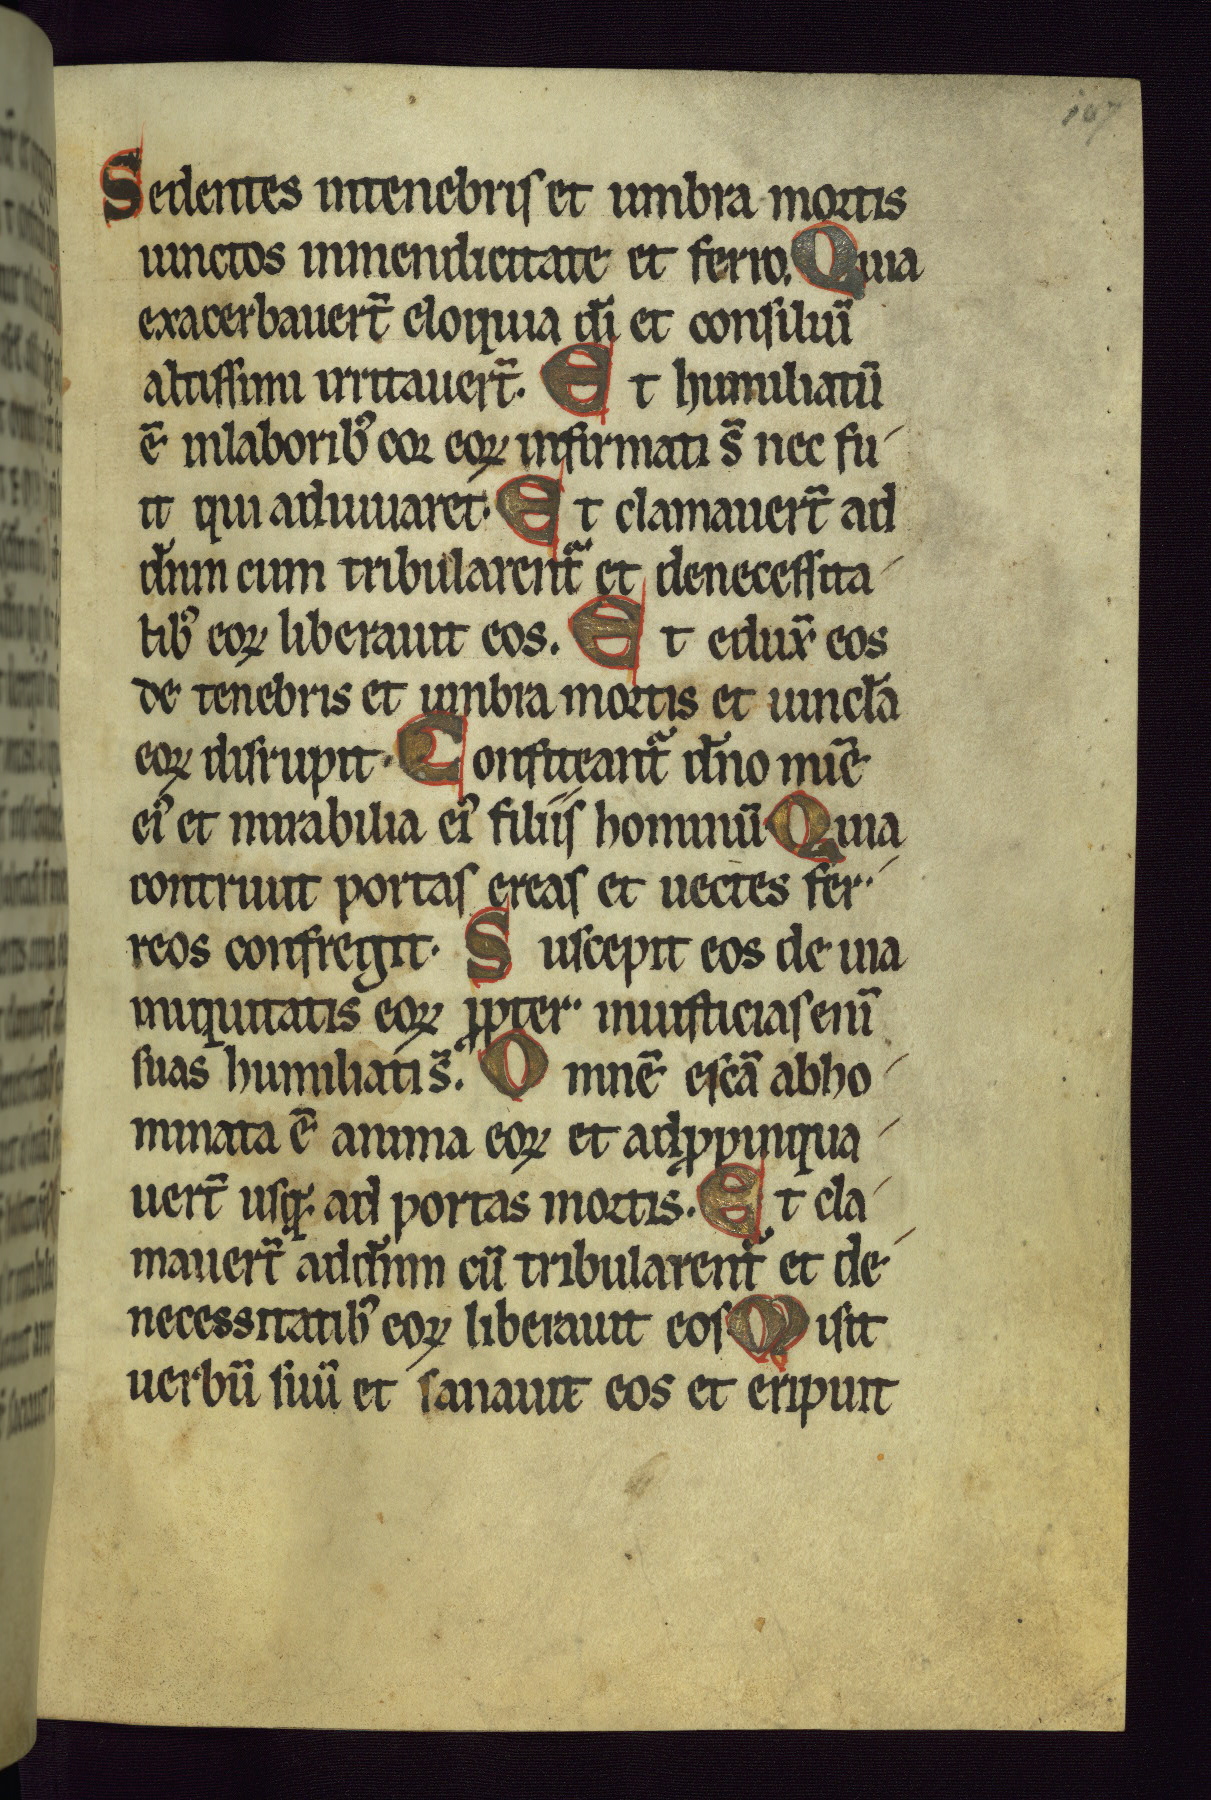 167
Sedentes intenebris et umbra mortis
uinctos inmendicitate et ferro. Quia
exacerbauert̄ eloquia dī et consiliū
altissimi irritauert̄. Et humiliatū
ē inlaborib᾿ cor eoꝝ infirmati s̄ nec fu
it qui adiuuaret. Et clamauert̄ ad
dn̄m cum tribularent᷑ et denecessita
tib᾿ eoꝝ liberauit eos. Et edux̄ eos
de tenebris et umbra mortis et uincl̄a
eoꝝ disrupit. Confiteant᷑ dn̄o mīe
ei᾿ et mirabilia ei᾿ filiis hominū Quia
contriuit portas ereas et uectes fer
reos confregit. Suscepit eos de uia
iniquitatis eoꝝ ꝓpter iniusticias eni̅
suas humiliati s̄. Omnē escā abho
minata ē anima eoꝝ et adꝓpinqua
uert̄ usq; ad portas mortis. Et cla
mauert̄ addn̄m cū tribularent᷑ et de
necessitatib᾿ eoꝝ liberauit eos Misit
uerbū suū et sanauit eos et eripuit